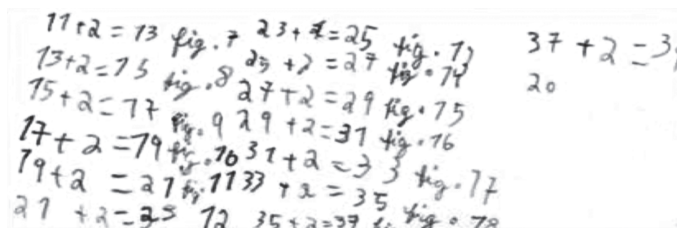 11+2=13 fig. 7
13+2=15 fig. 8
15+2=17 fig. 9
17+2=19 fig. 10
19+2=21 fig. 11
21+2=23 12
23+2=25 fig. 13
25+2=27 fig. 14
27+2=29 fig. 15
29+2=31 fig. 16
31+2=33 fig. 17
33+2=35 fig. 18
35+2=37
37+2=3
20